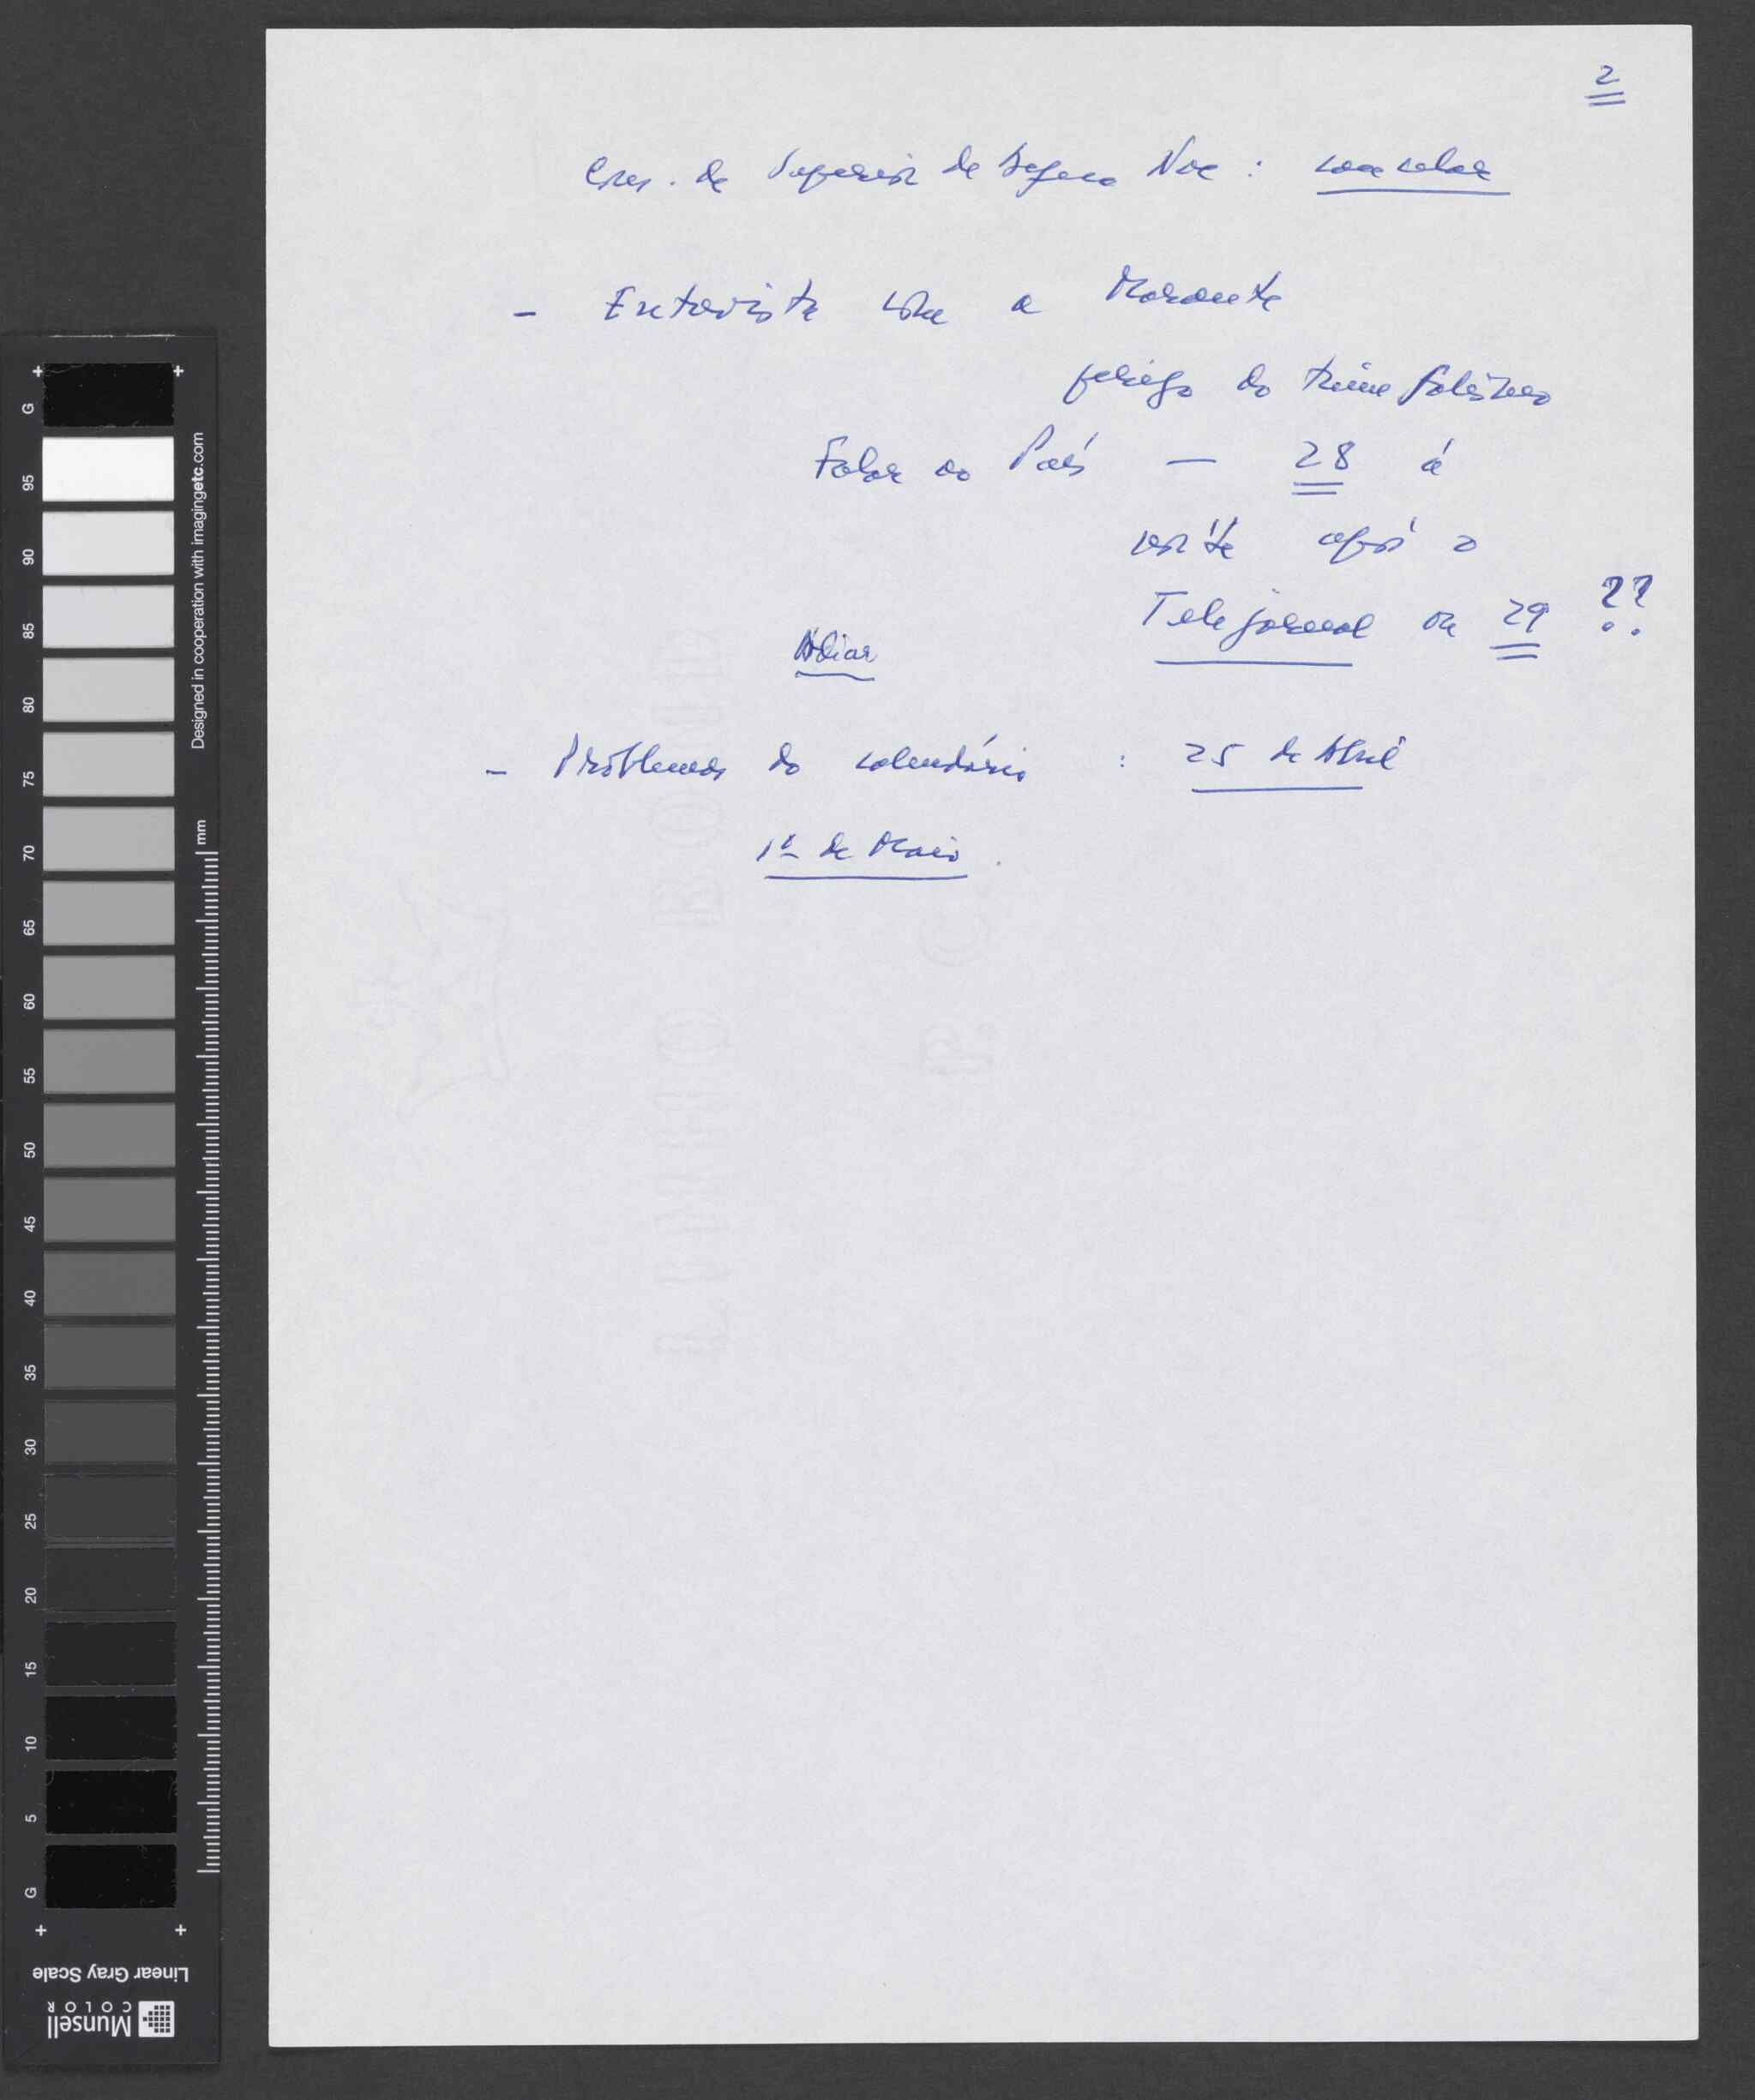 2
Cons. de Superior de Defesa Nac : cancelar
- Entrevista com a Marante
perigo do triunfalismo
Falar ao País — 28 à
noite após o
Telejornal ou 29 ??
Adiar
- Problemas do calendário : 25 de Abril
1º de Maio.
G 95 90 85 80 75 70 65 60 55 50 45 40 35 30 25 20 15 10 5 G
Designed in cooperation with imagingetc.com
mm
Linear Gray Scale
Munsell
COLOR